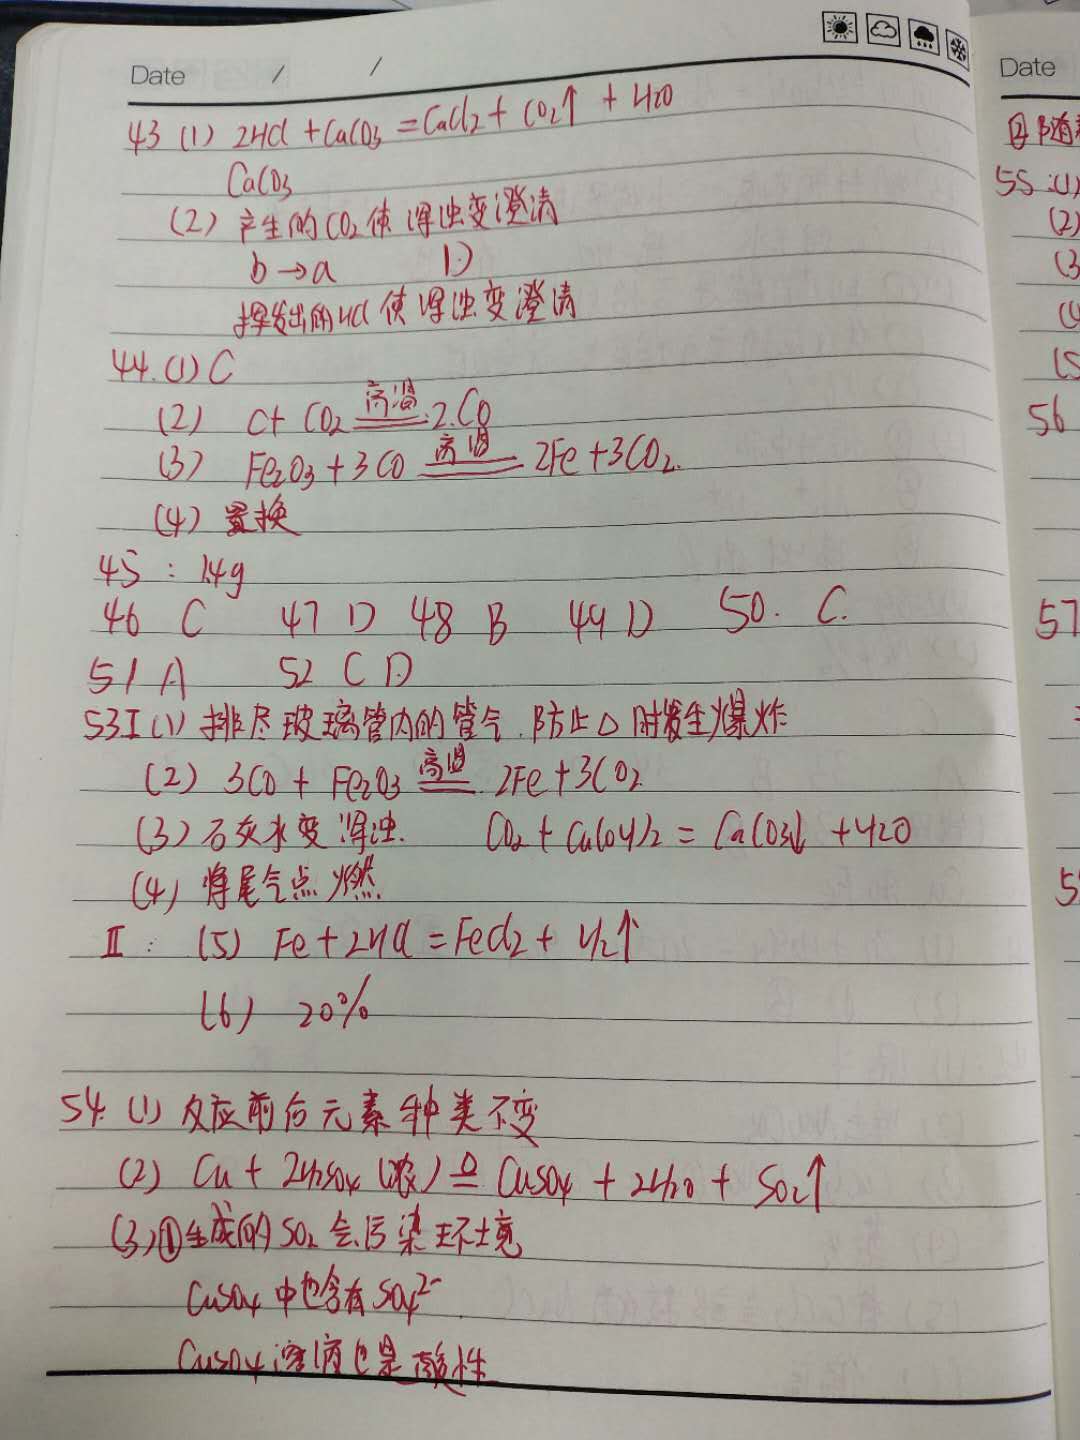 Date / /
43 (1) 2HCl + CaCO3 = CaCl2 + CO2↑ + H2O
CaCO3
(2) 产生的CO2使浑浊变澄清
b→a D
挥发出的HCl使浑浊变澄清
44.(1) C
(2) C+ CO2 高温 2CO
(3) Fe2O3 + 3CO 高温 2Fe+3CO2.
(4) 置换
45 : 14g
46 C 47 D 48 B 49 D 50. C.
51 A 52 C D
53 I (1) 排尽玻璃管内的管气.防止△时发生爆炸
(2) 3CO + Fe2O3 高温 2Fe+3CO2
(3) 石灰水变浑浊. CO2 + Ca(OH)2 = CaCO3↓ + H2O
(4) 将尾气点燃
II : (5) Fe+2HCl = FeCl2 + H2↑
(6) 20%
54. (1) 反应前后元素种类不变
(2) Cu + 2H2SO4 (浓) △ CuSO4 + 2H2O + SO2↑
(3) ①生成的SO2会污染环境
CuSO4中也含有SO4²⁻
CuSO4溶液也是酸性
Date
55 :(1)
(2)
(3
(4
(5
56
57